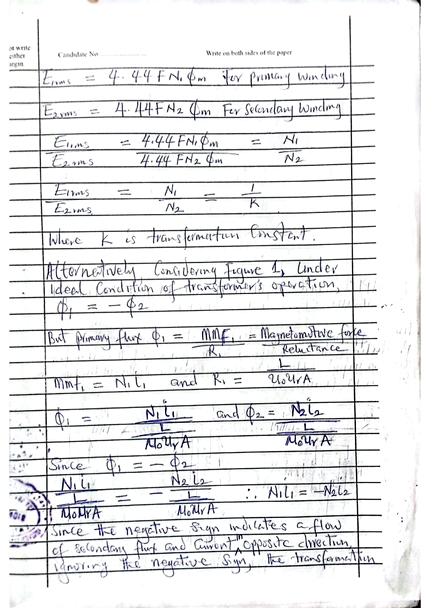 Candidate No
Write on both sides of the paper
E₁rms = 4.44 F N₁ Φm for primary winding
E₂rms = 4.44 F N₂ Φm For Secondary Winding
E₁rms / E₂rms = 4.44 F N₁ Φm / 4.44 F N₂ Φm = N₁ / N₂
E₁rms / E₂rms = N₁ / N₂ = 1 / K
Where K is transformation Constant.
Alternatively Considering Figure 1, Under
ideal Condition of transformer's operation,
Φ₁ = - Φ₂
But primary flux Φ₁ = MMF₁ / R₁ = Magnetomotive force / Reluctance
Mmf₁ = N₁ i₁ and R₁ = L / μ₀μrA
Φ₁ = N₁ i₁ / (L / μ₀μrA) and Φ₂ = N₂ i₂ / (L / μ₀μrA)
Since Φ₁ = - Φ₂
N₁ i₁ / (L / μ₀μrA) = - N₂ i₂ / (L / μ₀μrA) ∴ N₁i₁ = -N₂i₂
Since the negative sign indicates a flow
of secondary flux and Current in opposite direction
ignoring the negative Sign, the transformation